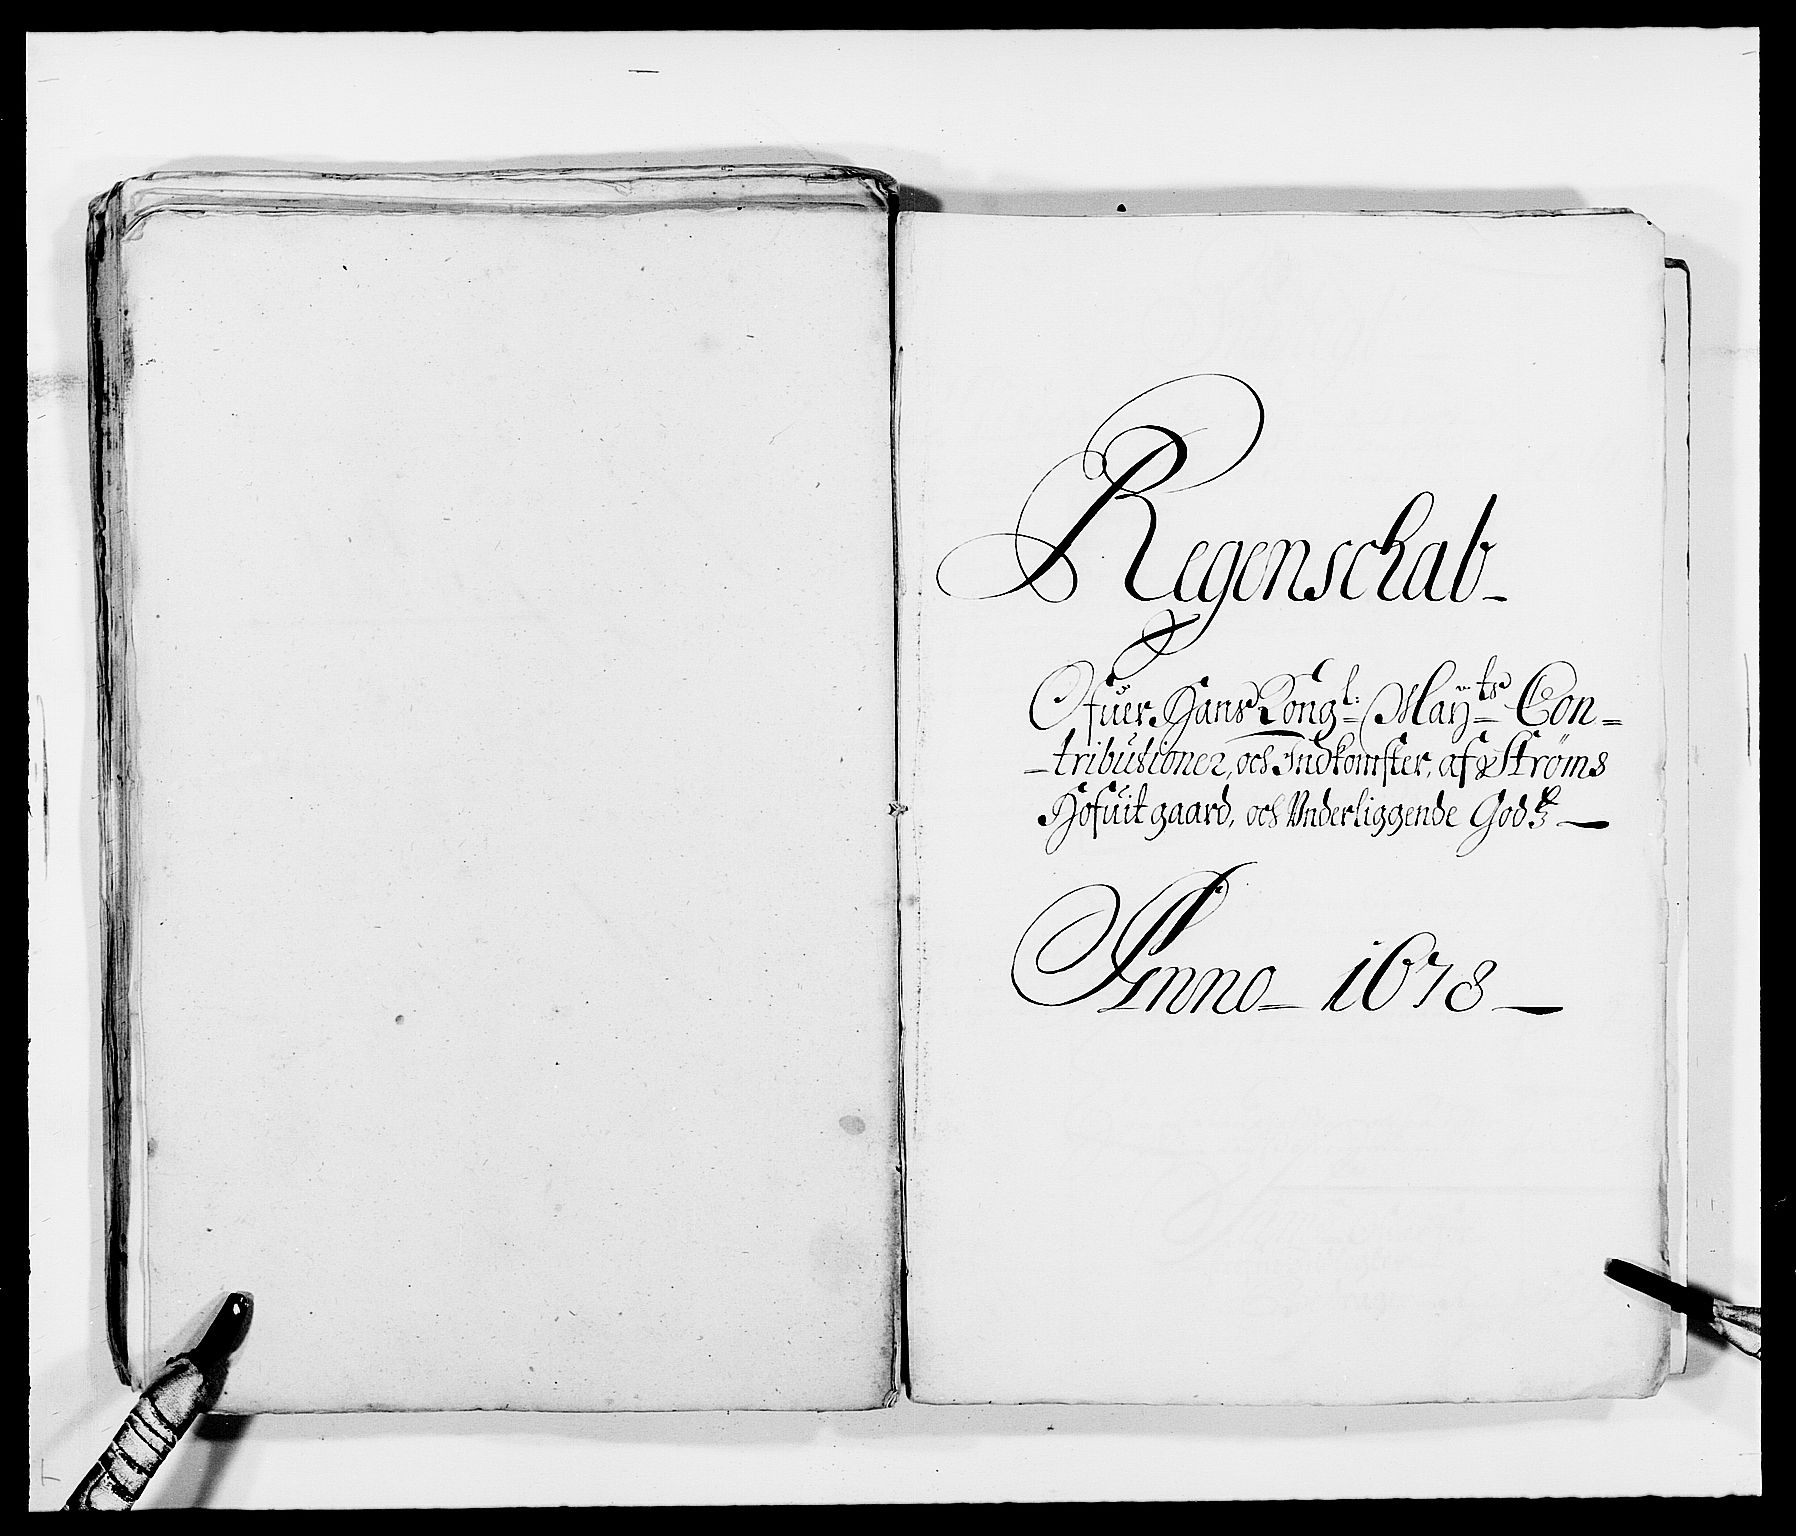 Regenschab
Ofuer Hans Kongl: Mayts Con=
=tributioner, och Indkomster, af Strøms
Hofuit gaard, och Vnderliggende Godß
Anno 1678